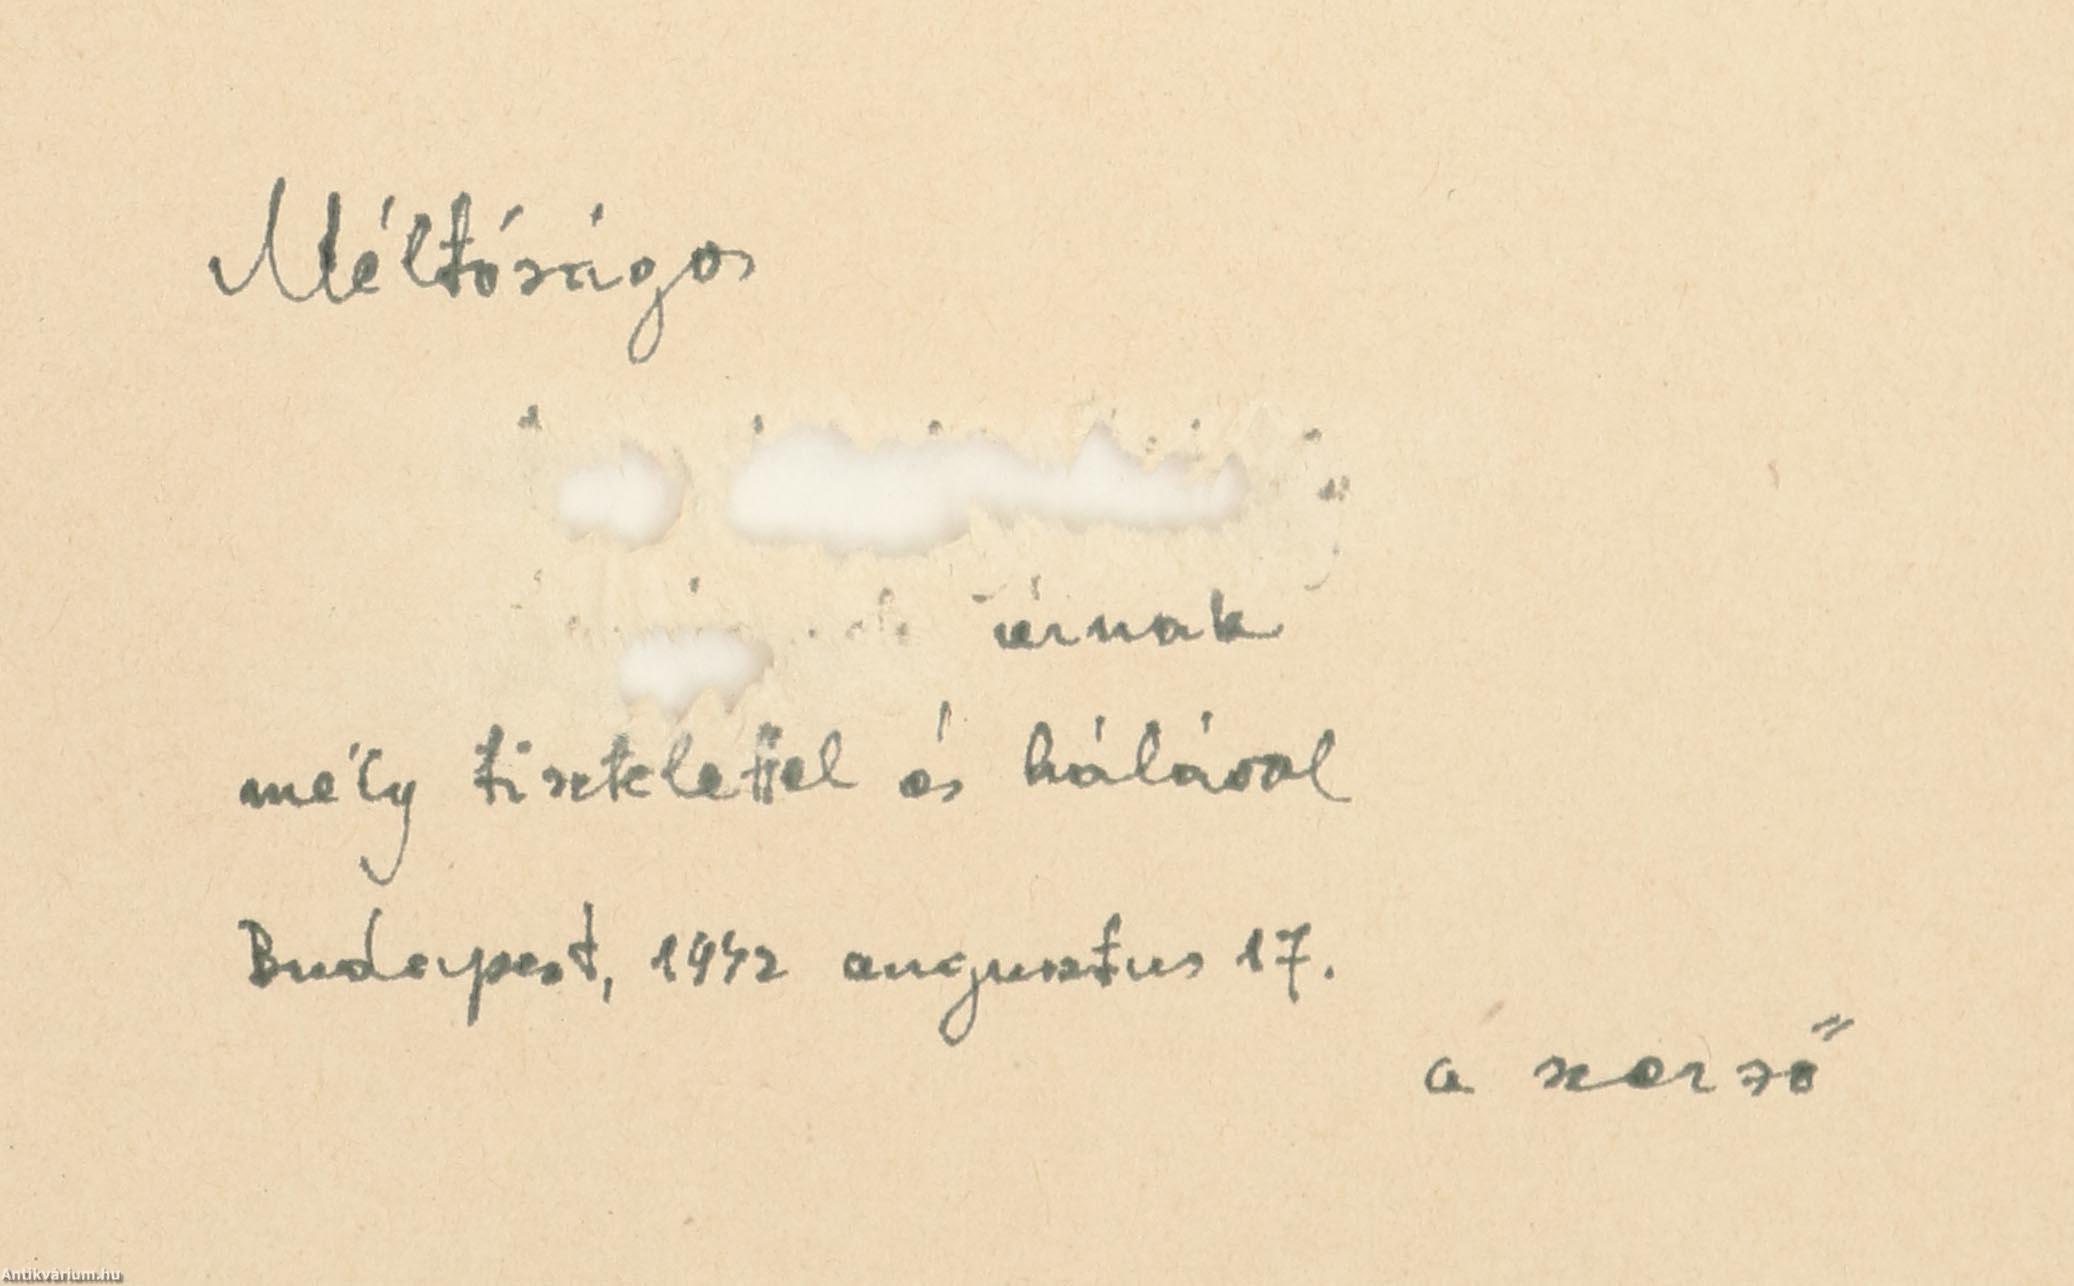 Méltóságos
úrnak
mély tisztelettel és hálával
Budapest, 1942 augusztus 17.
a szerző
Antikvárium.hu